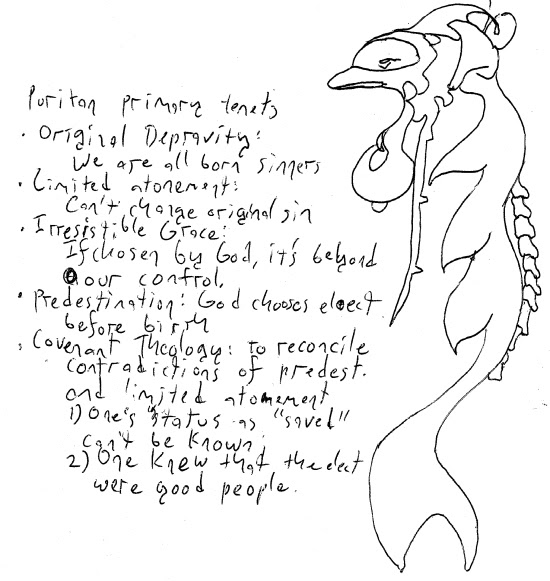 Puritan primary tenets
• Original Depravity:
We are all born sinners
• Limited atonement:
Can't change original sin
• Irresistible Grace:
If chosen by God, it's beyond
our control.
• Predestination: God chooses elect
before birth
• Covenant Theology: to reconcile
contradictions of predest.
and limited atonement
1) One's status as "saved"
can't be known;
2) One knew that the elect
were good people.